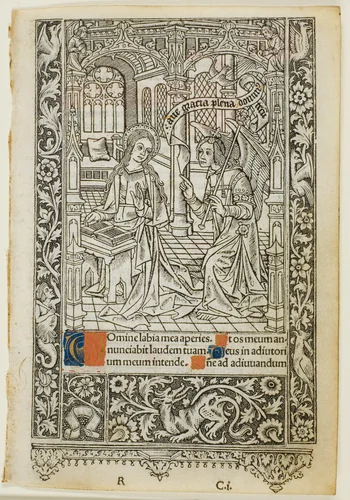 aue gracia plena dominus tecū
Domine labia mea aperies. Et os meum an-
nunciabit laudem tuam Deus in adiutori
um meum intende. Dñe ad adiuuandum
R C.i.